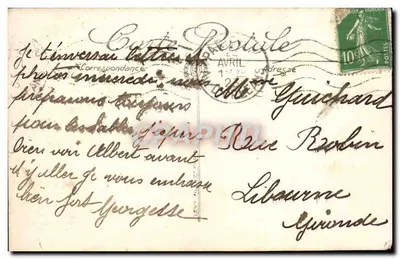 Carte Postale
Correspondance
Adresse
AVRIL
10c
POSTES
Je t'enverrai lettres et
photos mercredi nous
préparons toujours
pour les Sables j'espère
bien voir Albert avant
d'y aller Je vous embrasse
bien fort Georgette
Mme Guichard
Rue
Libourne
Gironde